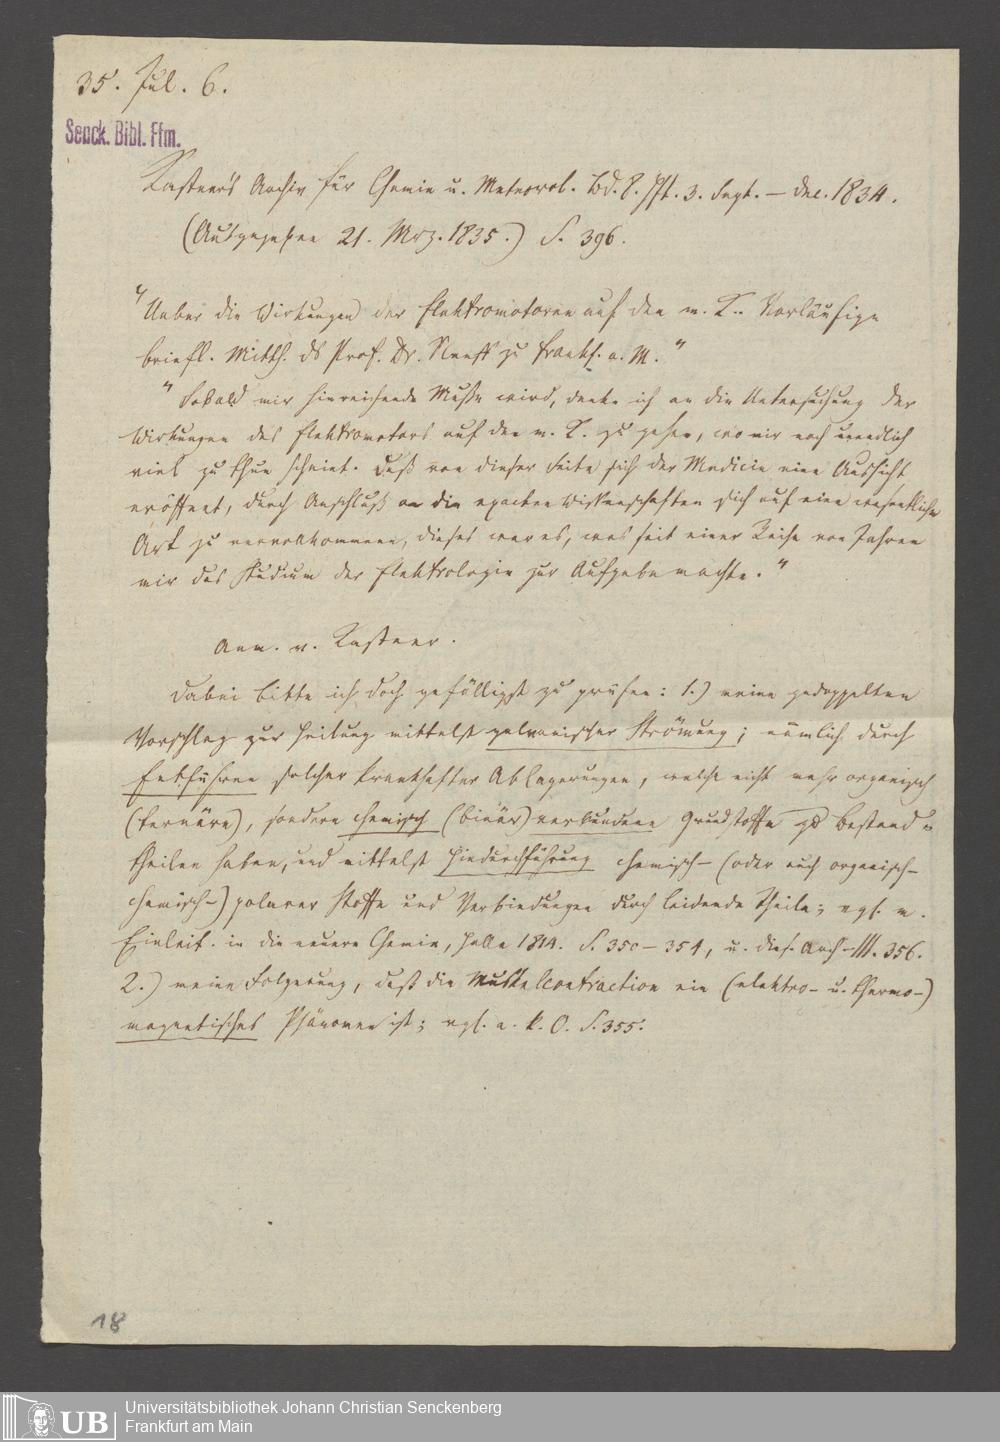 35. Jul. 6.
Senck. Bibl. Ffm.
Kastner's Archiv für Chemie u. Meteorol. Bd. 8. Hft. 3. Sept. – Dec. 1834.
(Ausgegeben 21. Mrz. 1835.) S. 396.
"Ueber die Wirkungen der Elektromotoren auf den m. K.. Vorläufige
briefl. Mitth. ds Prof. Dr. Neeff zu Frankf. a. M."
"Sobald mir hinreichende Muße wird, denke ich an die Untersuchung der
Wirkungen des Elektromotors auf den m. K. zu gehen, wo mir noch unendlich
viel zu thun scheint. Daß von dieser Seite sich der Medicin eine Aussicht
eröffnet, durch Anschluß an die exacten Wissenschaften sich auf eine wesentliche
Art zu vervollkommnen, dieses war es, was seit einer Reihe von Jahren
mir das Studium der Elektrologie zur Aufgabe machte."
Anm. v. Kastner.
Dabei bitte ich doch gefälligst zu prüfen: 1.) meine gedoppelten
Vorschlag zur Heilung mittelst galvanischer Strömung; nämlich durch
Entführen solcher krankhafter Ablagerungen, welche nicht mehr organisch
(ternäre), sondern chemisch (binär) verbundene Grundstoffe zu Bestand-
theilen haben, und mittelst Hindurchführung chemisch- (oder auch organisch-
chemisch-) polarer Stoffe und Verbindungen durch leidende Theile; vgl. m.
Einleit. in die neuere Chemie, Halle 1814. S. 350 – 351, u. dies. Arch. III. 356.
2.) meine Folgerung, daß die Muskelcontraction ein (elektro- u. thermo-)
magnetisches Phänomen ist; vgl. a. l. O. S. 355.
18
UB
Universitätsbibliothek Johann Christian Senckenberg
Frankfurt am Main